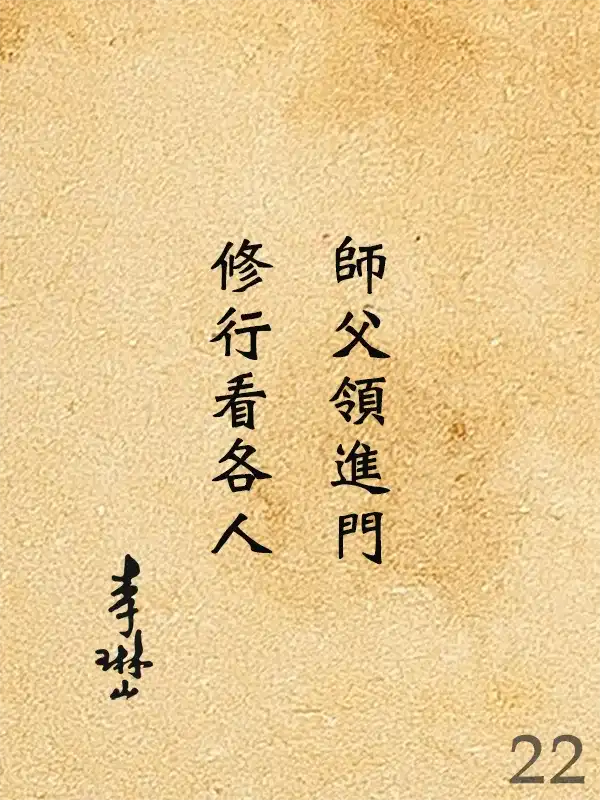 師父領進門
修行看各人
李琳山
22